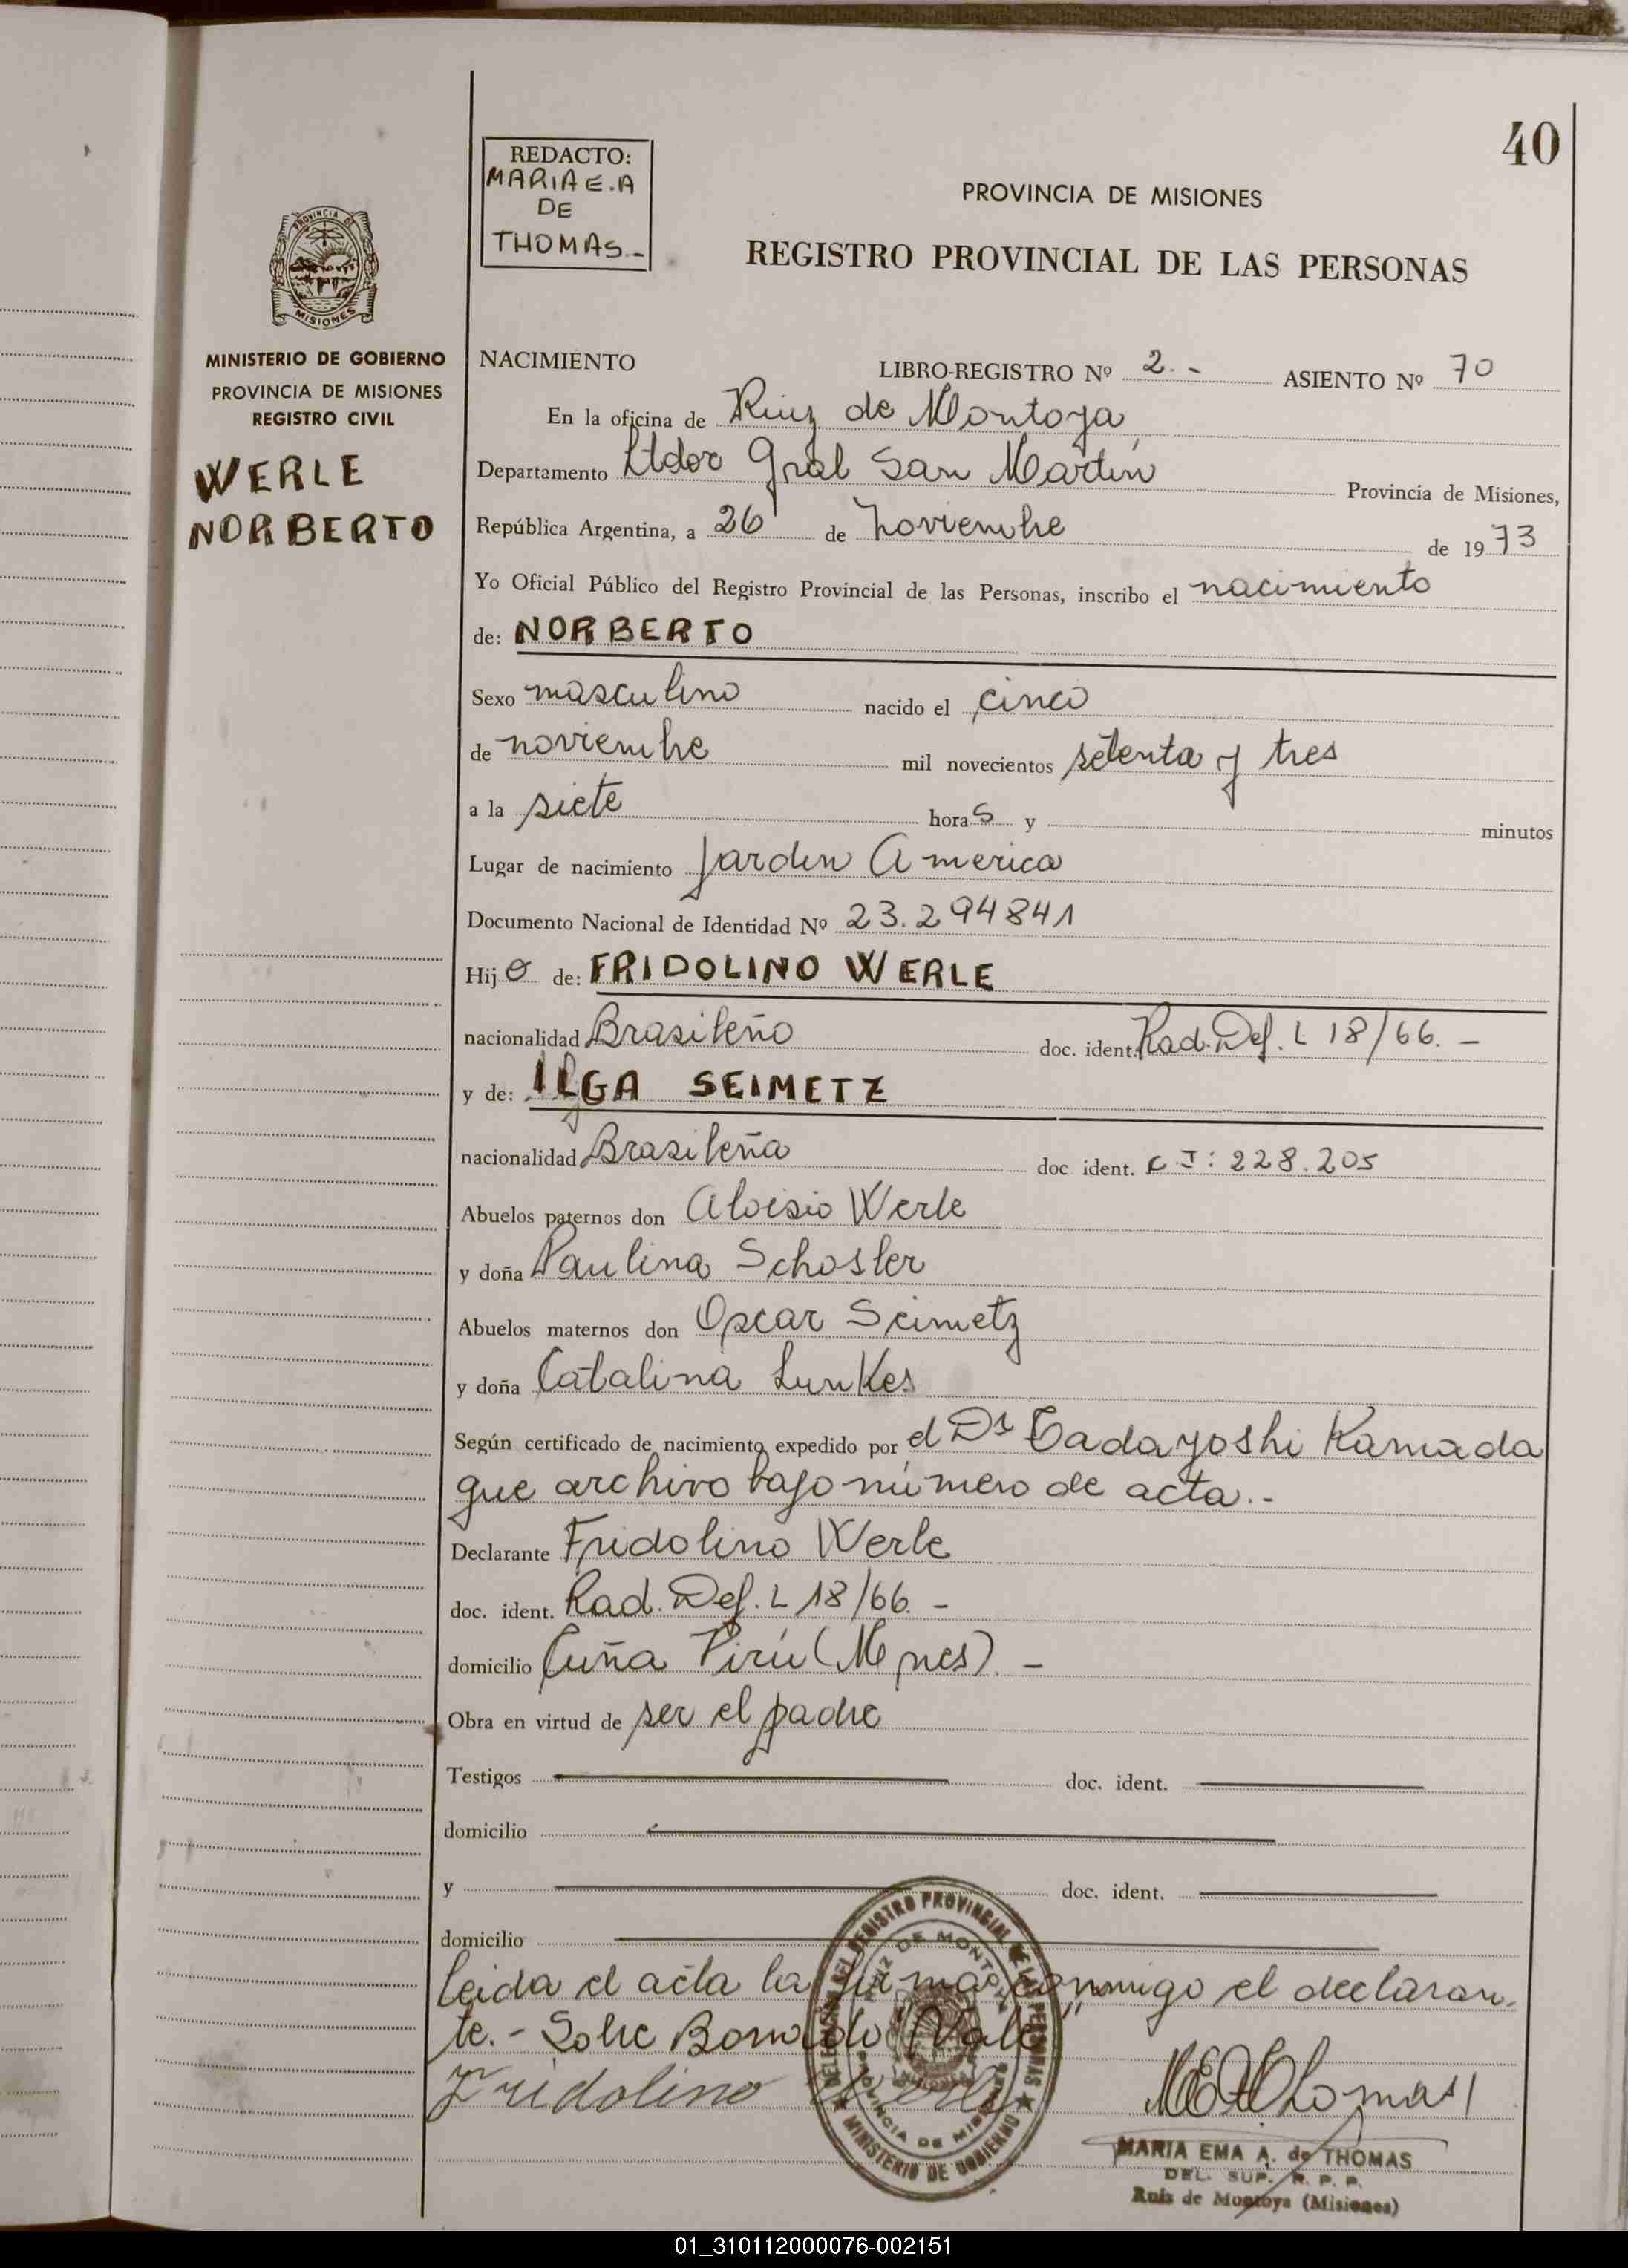 40
REDACTO:
MARIA E.A
DE
THOMAS.-
PROVINCIA DE MISIONES
REGISTRO PROVINCIAL DE LAS PERSONAS
PROVINCIA DE
MISIONES
MINISTERIO DE GOBIERNO
PROVINCIA DE MISIONES
REGISTRO CIVIL
WERLE
NORBERTO
NACIMIENTO LIBRO-REGISTRO Nº 2.- ASIENTO Nº 70
En la oficina de Ruiz de Montoya
Departamento Ltdor Gral San Martín Provincia de Misiones,
República Argentina, a 26 de noviembre de 1973
Yo Oficial Público del Registro Provincial de las Personas, inscribo el nacimiento
de: NORBERTO
Sexo masculino nacido el cinco
de noviembre mil novecientos setenta y tres
a la siete horas y minutos
Lugar de nacimiento Jardin America
Documento Nacional de Identidad Nº 23.294841
Hijo de: FRIDOLINO WERLE
nacionalidad Brasileño doc. ident. Rad. Def. L 18/66.-
y de: ILGA SEIMETZ
nacionalidad Brasileña doc ident. C.I: 228.205
Abuelos paternos don Aloisio Werle
y doña Paulina Schosler
Abuelos maternos don Oscar Seimetz
y doña Catalina Lunkes
Según certificado de nacimiento expedido por el Dr Tadayoshi Kamada
que archivo bajo número de acta.-
Declarante Fridolino Werle
doc. ident. Rad. Def. L 18/66.-
domicilio Cuña Pirú (Mnes).-
Obra en virtud de ser el padre
Testigos doc. ident.
domicilio
y doc. ident.
domicilio
Leida el acta la firma conmigo el declaran-
te.- Sobre Borrado "Vale"
Fridolino Werle
DELEGACIÓN DEL REGISTRO PROVINCIAL DE LAS PERSONAS
RUIZ DE MONTOYA
PROVINCIA DE MISIONES
MINISTERIO DE GOBIERNO
MEAThomas
MARIA EMA A. de THOMAS
DEL. SUP. R. P. P.
Ruiz de Montoya (Misiones)
01_310112000076-002151